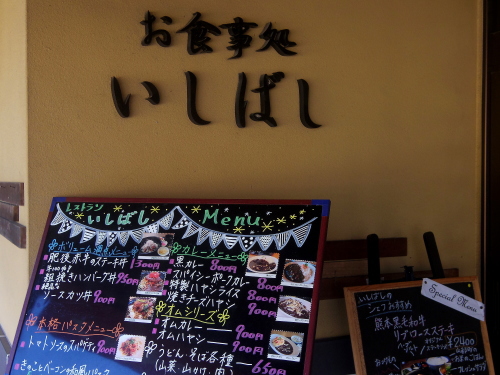 お食事処
いしばし
レストラン
いしばし Menu
肥後赤牛のステーキ丼
1500円
粗挽きハンバーグ丼 950円
ソースカツ丼 900円
本格パスタメニュー
トマトソーススパゲティ 900円
カレーメニュー
黒カレー 800円
スパイシーポークカレー 800円
特製ハヤシライス 800円
焼きチーズハヤシ 900円
オムシリーズ
オムカレー 900円
オムハヤシー 900円
うどん・そば各種
(山菜・山かけ・肉) 650円
Special Menu
いしばしの
シェフおすすめ
熊本黒毛和牛
リブロースステーキ